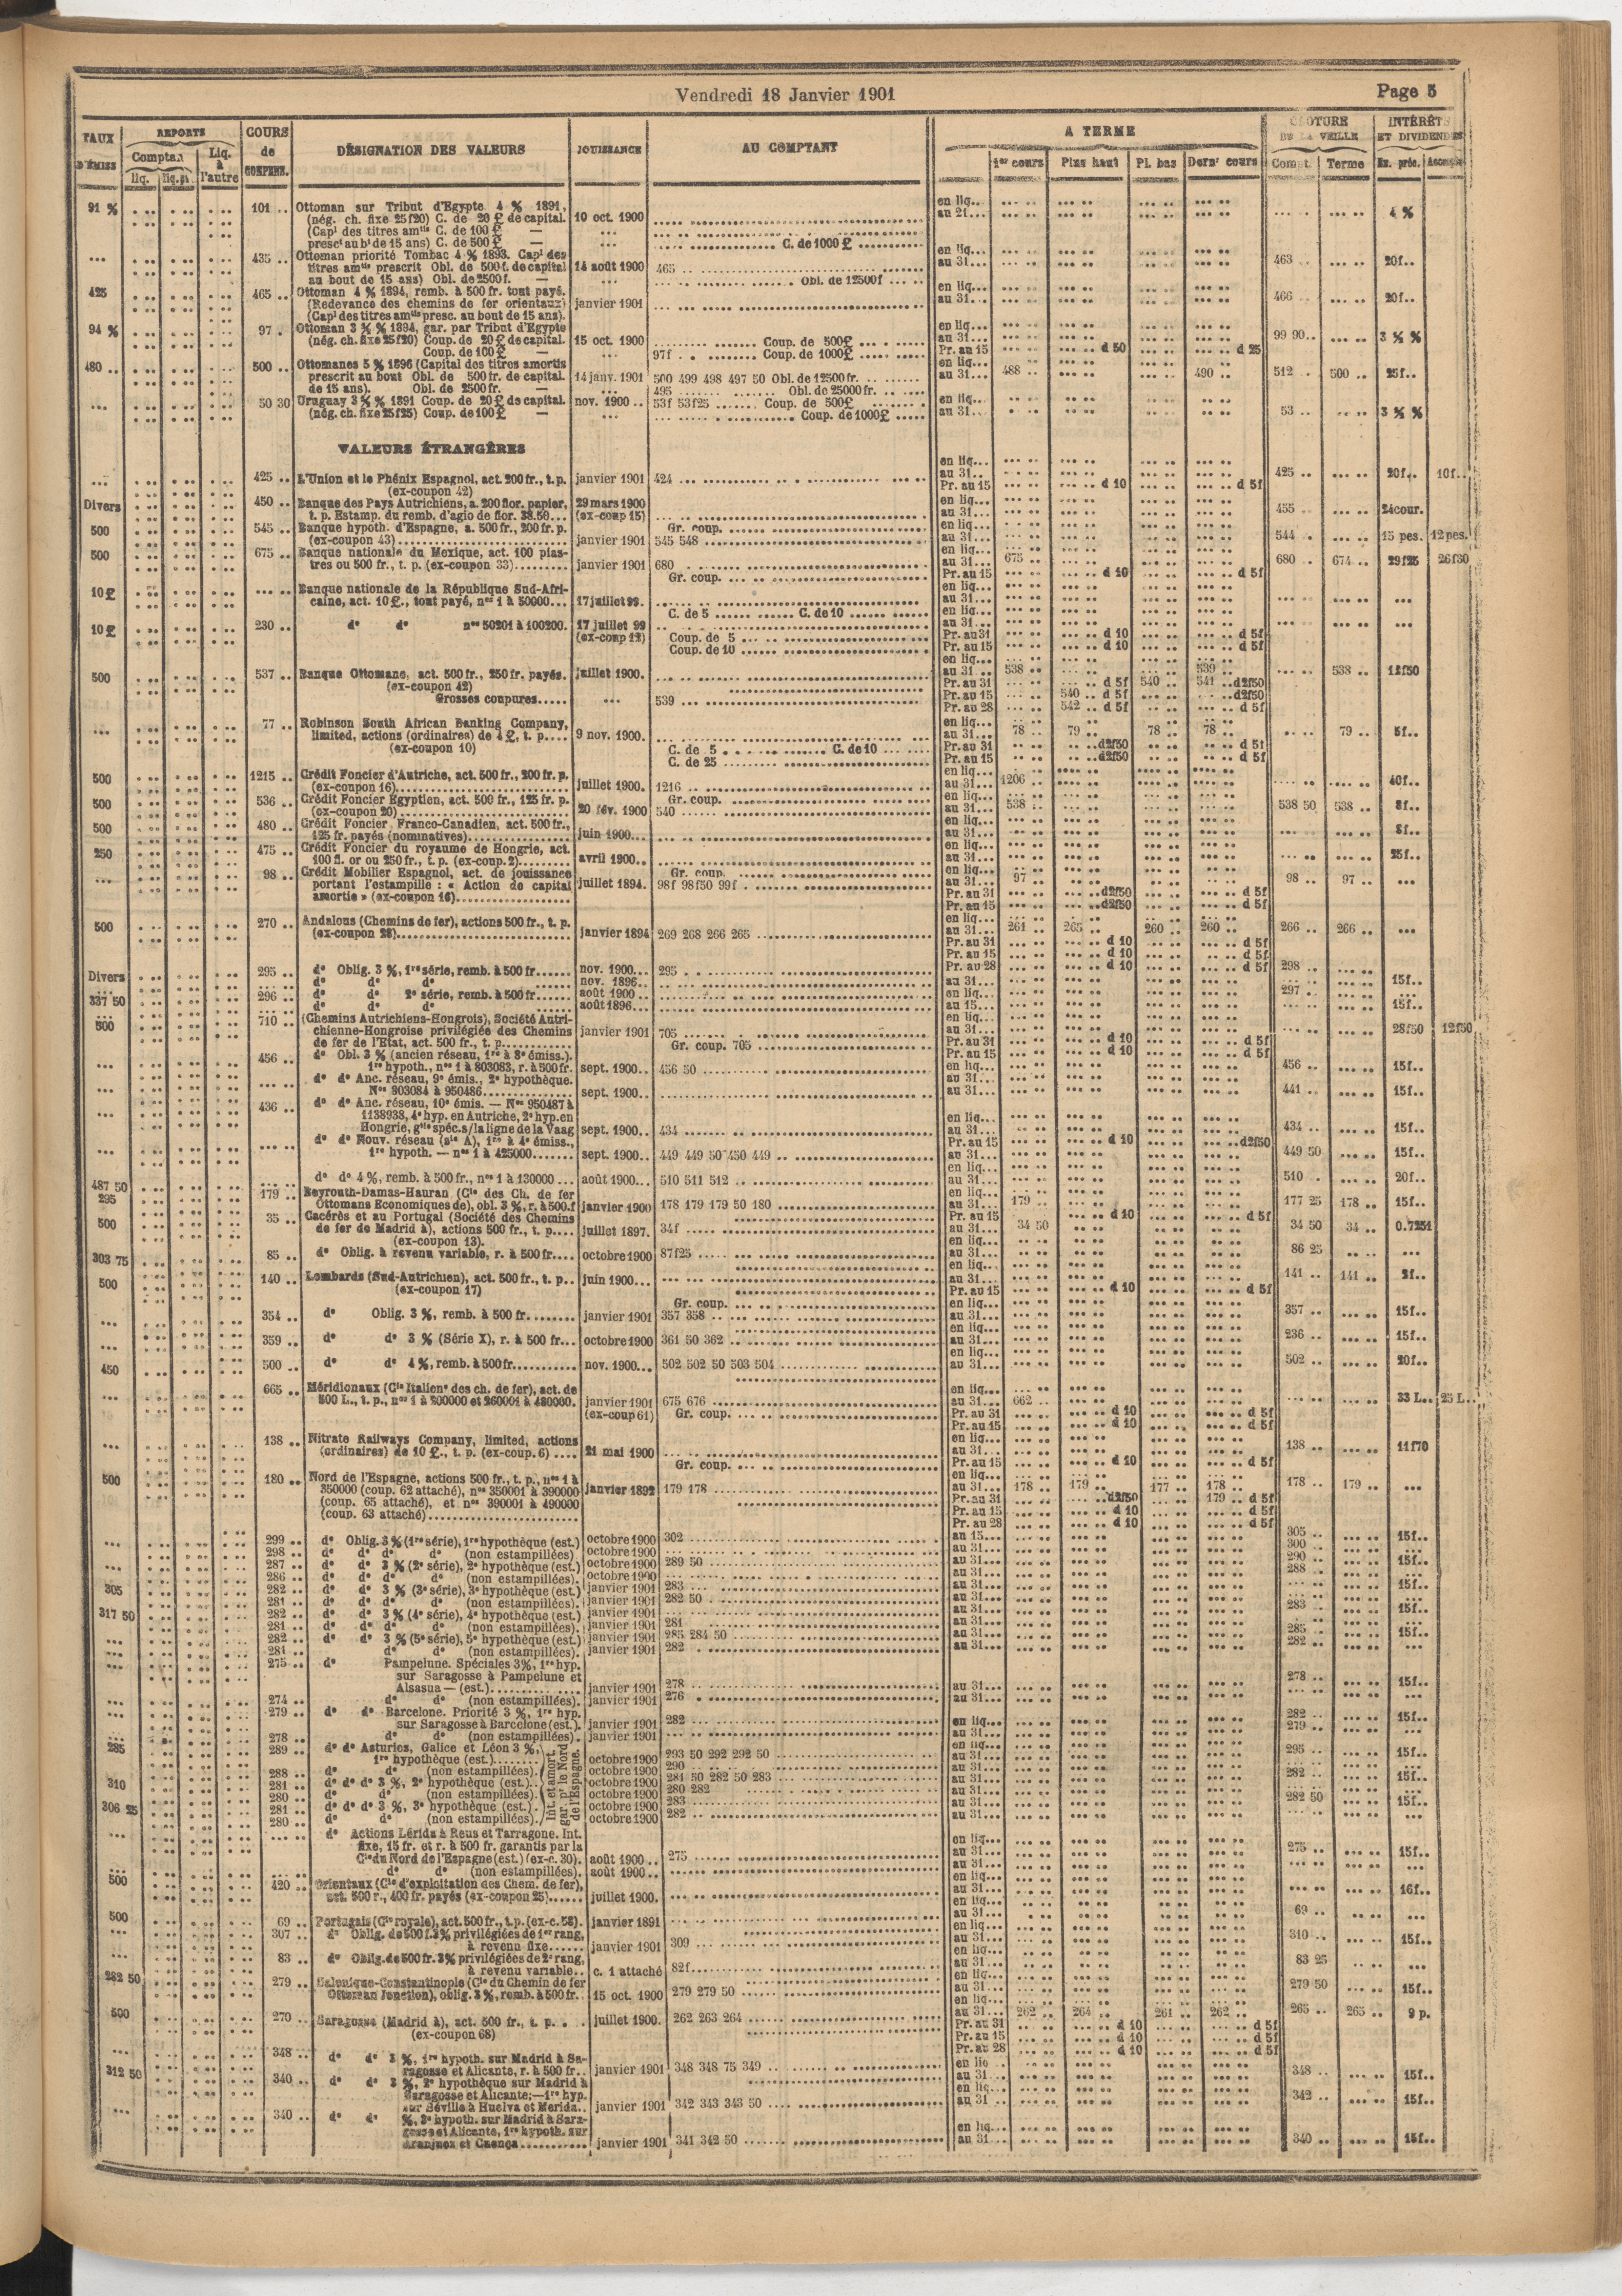 Vendredi 18 Janvier 1901
Page 5
TAUX D'ÉMISS
REPORTS
Comptan
liq. liq.pl
Liq. à l'autre
COURS de COMPENS.
DÉSIGNATION DES VALEURS
JOUISSANCE
AU COMPTANT
A TERME
1er cours Plus haut Pl. bas Dern. cours
CLOTURE DE LA VEILLE
Compt. Terme
INTÉRÊTS ET DIVIDENDES
Ex. préc. Acompte
91 % 101 .. Ottoman sur Tribut d'Egypte 4 % 1891, en liq..
(nég. ch. fixe 25f20) C. de 20 £ de capital. 10 oct. 1900 au 31... 4 %
(Capl des titres amtis C. de 100 £ —
presct au bt de 15 ans) C. de 500 £ — C. de 1000 £
435 .. Ottoman priorité Tombac 4 % 1893. Capl des en liq...
titres amtis prescrit Obl. de 500f. de capital 14 août 1900 465 au 31... 463 .. 20f..
au bout de 15 ans) Obl. de 2500f. — Obl. de 12500f
425 465 .. Ottoman 4 % 1894, remb. à 500 fr. tout payé. en liq...
(Redevance des chemins de fer orientaux) janvier 1901 au 31... 466 .. 20f..
(Capl des titres amtis presc. au bout de 15 ans).
94 % 97 . Ottoman 3 ½ % 1894, gar. par Tribut d'Egypte en liq...
(nég. ch. fixe 25f20) Coup. de 20 £ de capital. 15 oct. 1900 Coup. de 500£ au 31... 99 90.. 3 ½ %
Coup. de 100 £ — 97f . Coup. de 1000£ Pr. au 15 d 50 d 25
480 .. 500 .. Ottomanes 5 % 1896 (Capital des titres amortis en liq...
prescrit au bout Obl. de 500 fr. de capital. 14 janv. 1901 500 499 498 497 50 Obl. de 12500 fr. au 31... 488 .. 490 .. 512 .. 500 .. 25f..
de 15 ans). Obl. de 2500 fr. — 495 Obl. de 25000 fr.
50 30 Uruguay 3 ½ % 1891 Coup. de 20 £ de capital. nov. 1900 .. 53f 53f25 Coup. de 500£ en liq...
(nég. ch. fixe 25f25) Coup. de 100 £ — Coup. de 1000£ au 31... 53 .. 3 ½ %
VALEURS ÉTRANGÈRES
en liq...
425 .. L'Union et le Phénix Espagnol, act. 200 fr., t. p. janvier 1901 424 au 31.. 425 .. 20f.. 10f..
(ex-coupon 42) Pr. au 15 d 10 d 5f
Divers 450 .. Banque des Pays Autrichiens, a. 200 flor. papier, 29 mars 1900 en liq...
t. p. Estamp. du remb. d'agio de flor. 38.50... (ex-coup 15) au 31... 455 .. 24cour.
500 545 .. Banque hypoth. d'Espagne, a. 500 fr., 200 fr. p. Gr. coup. en liq...
(ex-coupon 43) janvier 1901 545 548 au 31... 544 . 15 pes. 12 pes.
500 675 .. Banque nationale du Mexique, act. 100 pias- en liq...
tres ou 500 fr., t. p. (ex-coupon 33) janvier 1901 680 au 31... 675 .. 680 .. 674 .. 29f25 26f30
Gr. coup. Pr. au 15 d 10 d 5f
10 £ Banque nationale de la République Sud-Afri- en liq...
caine, act. 10 £., tout payé, nos 1 à 50000... 17 juillet 99. au 31...
C. de 5 C. de 10 en liq...
10 £ 230 .. do do nos 50201 à 100200. 17 juillet 99 au 31...
(ex-coup 12) Coup. de 5 Pr. au 31 d 10 d 5f
Coup. de 10 Pr. au 15 d 10 d 5f
en liq...
500 537 .. Banque Ottomane, act. 500 fr., 250 fr. payés. juillet 1900. au 31 .. 538 .. 539 538 .. 12f50
(ex-coupon 42) Pr. au 31 d 5f 540 .. 541 .. d2f50
Grosses coupures..... 539 Pr. au 15 540 .. d 5f d2f50
Pr. au 28 542 .. d 5f d 5f
77 .. Robinson South African Banking Company, en liq...
limited, actions (ordinaires) de 4 £, t. p.... 9 nov. 1900. au 31... 78 .. 79 .. 78 .. 78 .. 79 .. 5f..
(ex-coupon 10) C. de 5 C. de 10 Pr. au 31 d2f50 d 5f
C. de 25 Pr. au 15 d2f50 d 5f
500 1215 .. Crédit Foncier d'Autriche, act. 500 fr., 200 fr. p. en liq...
(ex-coupon 16) juillet 1900. 1216 au 31... 1206 40f..
500 536 .. Crédit Foncier Egyptien, act. 500 fr., 125 fr. p. Gr. coup. en liq...
(ex-coupon 20) 20 fév. 1900 540 au 31... 538 .. 538 50 538 .. 8f..
500 480 .. Crédit Foncier Franco-Canadien, act. 500 fr., en liq...
125 fr. payés (nominatives) juin 1900... au 31... 8f..
250 475 .. Crédit Foncier du royaume de Hongrie, act. en liq...
100 fl. or ou 250 fr., t. p. (ex-coup. 2) avril 1900.. au 31... 25f..
98 .. Crédit Mobilier Espagnol, act. de jouissance Gr. coup. en liq...
portant l'estampille : « Action de capital juillet 1894. 98f 98f50 99f . au 31... 97 .. 98 .. 97 ..
amortie » (ex-coupon 16) Pr. au 31 d2f50 d 5f
Pr. au 15 d2f50 d 5f
500 270 .. Andalous (Chemins de fer), actions 500 fr., t. p. en liq...
(ex-coupon 28) janvier 1894 269 268 266 265 au 31... 261 .. 265 .. 260 .. 260 .. 266 .. 266 ..
Pr. au 31 d 10 d 5f
Pr. au 15 d 10 d 5f
Divers 295 .. do Oblig. 3 %, 1re série, remb. à 500 fr nov. 1900... 295 Pr. au 28 d 10 d 5f 298 ..
do do do nov. 1896... au 31... 15f..
337 50 296 .. do do 2e série, remb. à 500 fr août 1900... en liq... 297 ..
do do do août 1896... au 15... 15f..
500 710 .. (Chemins Autrichiens-Hongrois), Société Autri- en liq...
chienne-Hongroise privilégiée des Chemins janvier 1901 705 au 31... 28f50 12f50
de fer de l'Etat, act. 500 fr., t. p. Gr. coup. 705 Pr. au 31 d 10 d 5f
456 .. do Obl. 3 % (ancien réseau, 1re à 8e émiss.). Pr. au 15 d 10 d 5f
1re hypoth., nos 1 à 803083, r. à 500 fr. sept. 1900.. 456 50 en liq... 456 .. 15f..
do do Anc. réseau, 9e émis., 2e hypothèque. au 31...
Nos 803084 à 950486 sept. 1900.. au 31... 441 .. 15f..
436 .. do do Anc. réseau, 10e émis. — Nos 950487 à
1138938, 4e hyp. en Autriche, 2e hyp. en en liq...
Hongrie, gtie spéc. s/la ligne de la Vaag sept. 1900.. 434 au 31... 434 .. 15f..
do do Nouv. réseau (sie A), 1re à 4e émiss., Pr. au 15 d 10 d2f50
1re hypoth. — nos 1 à 425000 sept. 1900.. 449 449 50 450 449 au 31... 449 50 15f..
en liq...
487 50 do do 4 %, remb. à 500 fr., nos 1 à 130000 août 1900... 510 511 512 au 31... 510 . 20f..
295 179 .. Beyrouth-Damas-Hauran (Cie des Ch. de fer en liq...
Ottomans Economiques de), obl. 3 %, r. à 500.f janvier 1900 178 179 179 50 180 au 31... 179 .. 177 25 178 .. 15f..
500 35 .. Cacérès et au Portugal (Société des Chemins Pr. au 15 d 10 d 5f
de fer de Madrid à), actions 500 fr., t. p. juillet 1897. 34f au 31... 34 50 34 50 34 .. 0.7251
(ex-coupon 13). en liq...
303 75 85 .. do Oblig. à revenu variable, r. à 500 fr. octobre 1900 87f25 au 31... 86 25
en liq...
500 140 .. Lombards (Sud-Autrichien), act. 500 fr., t. p. juin 1900... au 31... 141 .. 141 .. 3f..
(ex-coupon 17) Pr. au 15 d 10 d 5f
Gr. coup. en liq...
354 .. do Oblig. 3 %, remb. à 500 fr. janvier 1901 357 358 au 31... 357 .. 15f..
en liq...
359 .. do do 3 % (Série X), r. à 500 fr... octobre 1900 361 50 362 au 31... 236 .. 15f..
en liq...
450 500 .. do do 4 %, remb. à 500 fr. nov. 1900... 502 502 50 503 504 au 31... 502 .. 20f..
665 .. Méridionaux (Cie Italiene des ch. de fer), act. de en liq...
500 L., t. p., nos 1 à 200000 et 260001 à 480000. janvier 1901 675 676 au 31... 662 .. 33 L.. 25 L..
(ex-coup 61) Gr. coup. Pr. au 31 d 10 d 5f
Pr. au 15 d 10 d 5f
138 .. Nitrate Railways Company, limited, actions en liq...
(ordinaires) de 10 £., t. p. (ex-coup. 6) 21 mai 1900 au 31... 138 .. 11f70
Gr. coup. Pr. au 15 d 10 d 5f
500 180 .. Nord de l'Espagne, actions 500 fr., t. p., nos 1 à en liq...
350000 (coup. 62 attaché), nos 350001 à 390000 janvier 1892 179 178 au 31... 178 .. 179 .. 177 .. 178 .. 178 .. 179 ..
(coup. 65 attaché), et nos 390001 à 490000 Pr. au 31 d2f50 179 .. d 5f
(coup. 63 attaché) Pr. au 15 d 10 d 5f
Pr. au 28 d 10 d 5f
299 .. do Oblig. 3 % (1re série), 1re hypothèque (est.) octobre 1900 302 au 15... 305 .. 15f..
298 .. do do do do (non estampillées) octobre 1900 au 31... 300 ..
287 .. do do 3 % (2e série), 2e hypothèque (est.) octobre 1900 289 50 au 31... 290 .. 15f..
286 .. do do do do (non estampillées). octobre 1900 au 31... 288 ..
305 282 .. do do 3 % (3e série), 3e hypothèque (est.) janvier 1901 283 au 31... 15f..
281 .. do do do do (non estampillées). janvier 1901 282 50 au 31...
317 50 282 .. do do 3 % (4e série), 4e hypothèque (est.) janvier 1901 au 31... 283 .. 15f..
281 .. do do do do (non estampillées). janvier 1901 281 au 31...
282 .. do do 3 % (5e série), 5e hypothèque (est.) janvier 1901 285 284 50 au 31... 285 .. 15f..
281 .. do do (non estampillées). janvier 1901 282 au 31... 282 ..
275 .. do Pampelune. Spéciales 3%, 1re hyp.
sur Saragosse à Pampelune et
Alsasua — (est.) janvier 1901 278 au 31... 278 .. 15f..
274 .. do do (non estampillées). janvier 1901 276 au 31...
279 .. do do Barcelone. Priorité 3 %, 1re hyp.
sur Saragosse à Barcelone (est.). janvier 1901 282 en liq... 282 .. 15f..
278 .. do do (non estampillées). janvier 1901 au 31... 279 ..
285 289 .. do do Asturies, Galice et Léon 3 %, en liq...
1re hypothèque (est.) octobre 1900 293 50 292 292 50 au 31... 295 .. 15f..
288 .. do do (non estampillées). octobre 1900 290 au 31...
310 281 .. do do do 3 %, 2e hypothèque (est.). octobre 1900 281 50 282 50 283 au 31... 282 .. 15f..
280 .. do do (non estampillées). octobre 1900 280 282 au 31...
306 25 281 .. do do do 3 %, 3e hypothèque (est.). octobre 1900 283 au 31... 282 50 15f..
280 .. do do (non estampillées). octobre 1900 282 au 31...
Int. et amort.
gar. pr le Nord
de l'Espagne.
do Actions Lérida à Reus et Tarragone. Int.
fixe, 15 fr. et r. à 500 fr. garantis par la en liq...
Cie du Nord de l'Espagne (est.) (ex-c. 30). août 1900 .. 275 au 31... 275 .. 15f..
do do (non estampillées). août 1900 .. au 31...
500 420 .. Orientaux (Cie d'exploitation des Chem. de fer), en liq...
act. 500 r., 400 fr. payés (ex-coupon 25) juillet 1900. au 31... 16f..
en liq...
500 69 .. Portugais (Cie royale), act. 500 fr., t. p. (ex-c. 58). janvier 1891 au 31... 69 ..
307 .. do Oblig. de 500 f. 3% privilégiées de 1er rang, en liq...
à revenu fixe janvier 1901 309 au 31... 310 .. 15f..
83 .. do Oblig. de 500 fr. 3% privilégiées de 2e rang, en liq...
à revenu variable.. c. 1 attaché 82f au 31... 83 25
282 50 279 .. Salonique-Constantinople (Cie du Chemin de fer en liq...
Ottoman Jonction), oblig. 3 %, remb. à 500 fr. 15 oct. 1900 279 279 50 au 31... 279 50 15f..
en liq...
500 270 .. Saragosse (Madrid à), act. 500 fr., t. p. juillet 1900. 262 263 264 au 31... 262 .. 264 .. 261 .. 262 .. 265 .. 265 .. 9 p.
(ex-coupon 68) Pr. at 31 d 10 d 5f
Pr. au 15 d 10 d 5f
Pr. au 28 d 10 d 5f
348 .. do do 3 %, 1re hypoth. sur Madrid à Sa- en liq..
312 50 ragosse et Alicante, r. à 500 fr. janvier 1901 348 348 75 349 au 31... 348 .. 15f..
340 .. do do 3 %, 2e hypothèque sur Madrid à
Saragosse et Alicante;—1re hyp. en liq...
sur Séville à Huelva et Merida. janvier 1901 342 343 343 50 au 31... 342 .. 15f..
340 .. do do %, 3e hypoth. sur Madrid à Sara-
gosse et Alicante, 1re hypoth. sur en liq...
Aranjuez et Cuenca janvier 1901 341 342 50 au 31... 340 .. 15f..